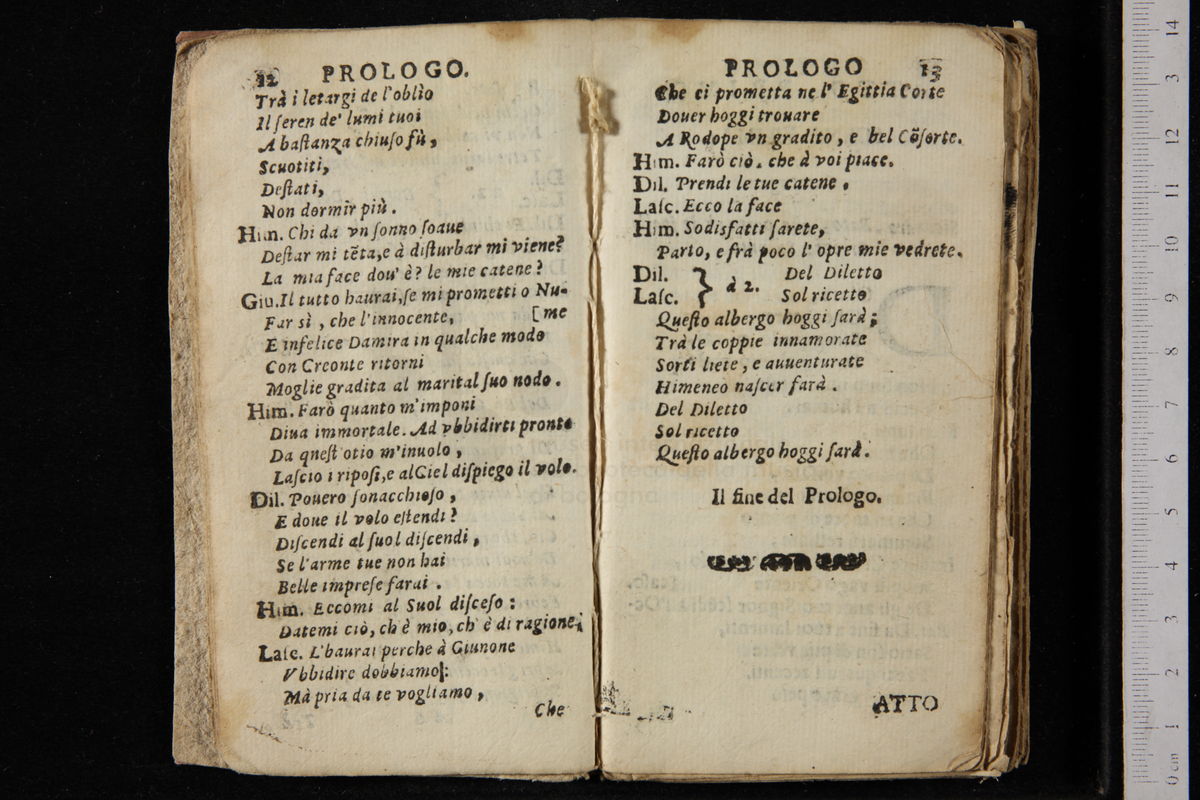 12 PROLOGO.
Trà i letargi de l'oblìo
Il ſeren de' lumi tuoi
A baſtanza chiuſo fù,
Scuotiti,
Deſtati,
Non dormir più.
Him. Chi da vn ſonno ſoaue
Deſtar mi tẽta, e à diſturbar mi viene?
La mia face dou' è? le mie catene?
Giu. Il tutto haurai, ſe mi prometti o Nu-
Far sì, che l'innocente, [me
E infelice Damira in qualche modo
Con Creonte ritorni
Moglie gradita al marital ſuo nodo.
Him. Farò quanto m'imponi
Diua immortale. Ad vbbidirti pronto
Da queſt'otio m'inuolo,
Laſcio i ripoſi, e al Ciel diſpiego il volo.
Dil. Pouero ſonacchioſo,
E doue il volo eſtendi?
Diſcendi al ſuol diſcendi,
Se l'arme tue non hai
Belle impreſe farai.
Him. Eccomi al Suol diſceſo:
Datemi ciò, ch'è mio, ch' è di ragione;
Laſc. L'haurai perche à Giunone
Vbbidire dobbiamo:
Mà pria da te vogliamo,
Che
PROLOGO 13
Che ci prometta ne l' Egittia Corte
Douer hoggi trouare
A Rodope vn gradito, e bel Cõſorte.
Him. Farò ciò. che à voi piace.
Dil. Prendi le tue catene.
Laſc. Ecco la face
Him. Sodisfatti ſarete,
Parto, e frà poco l' opre mie vedrete.
Dil. } à 2. Del Diletto
Laſc. Sol ricetto
Queſto albergo hoggi ſarà;
Trà le coppie innamorate
Sorti liete, e auuenturate
Himeneo naſcer farà.
Del Diletto
Sol ricetto
Queſto albergo hoggi ſarà.
Il fine del Prologo.
ATTO
0 cm 1 2 3 4 5 6 7 8 9 10 11 12 13 14